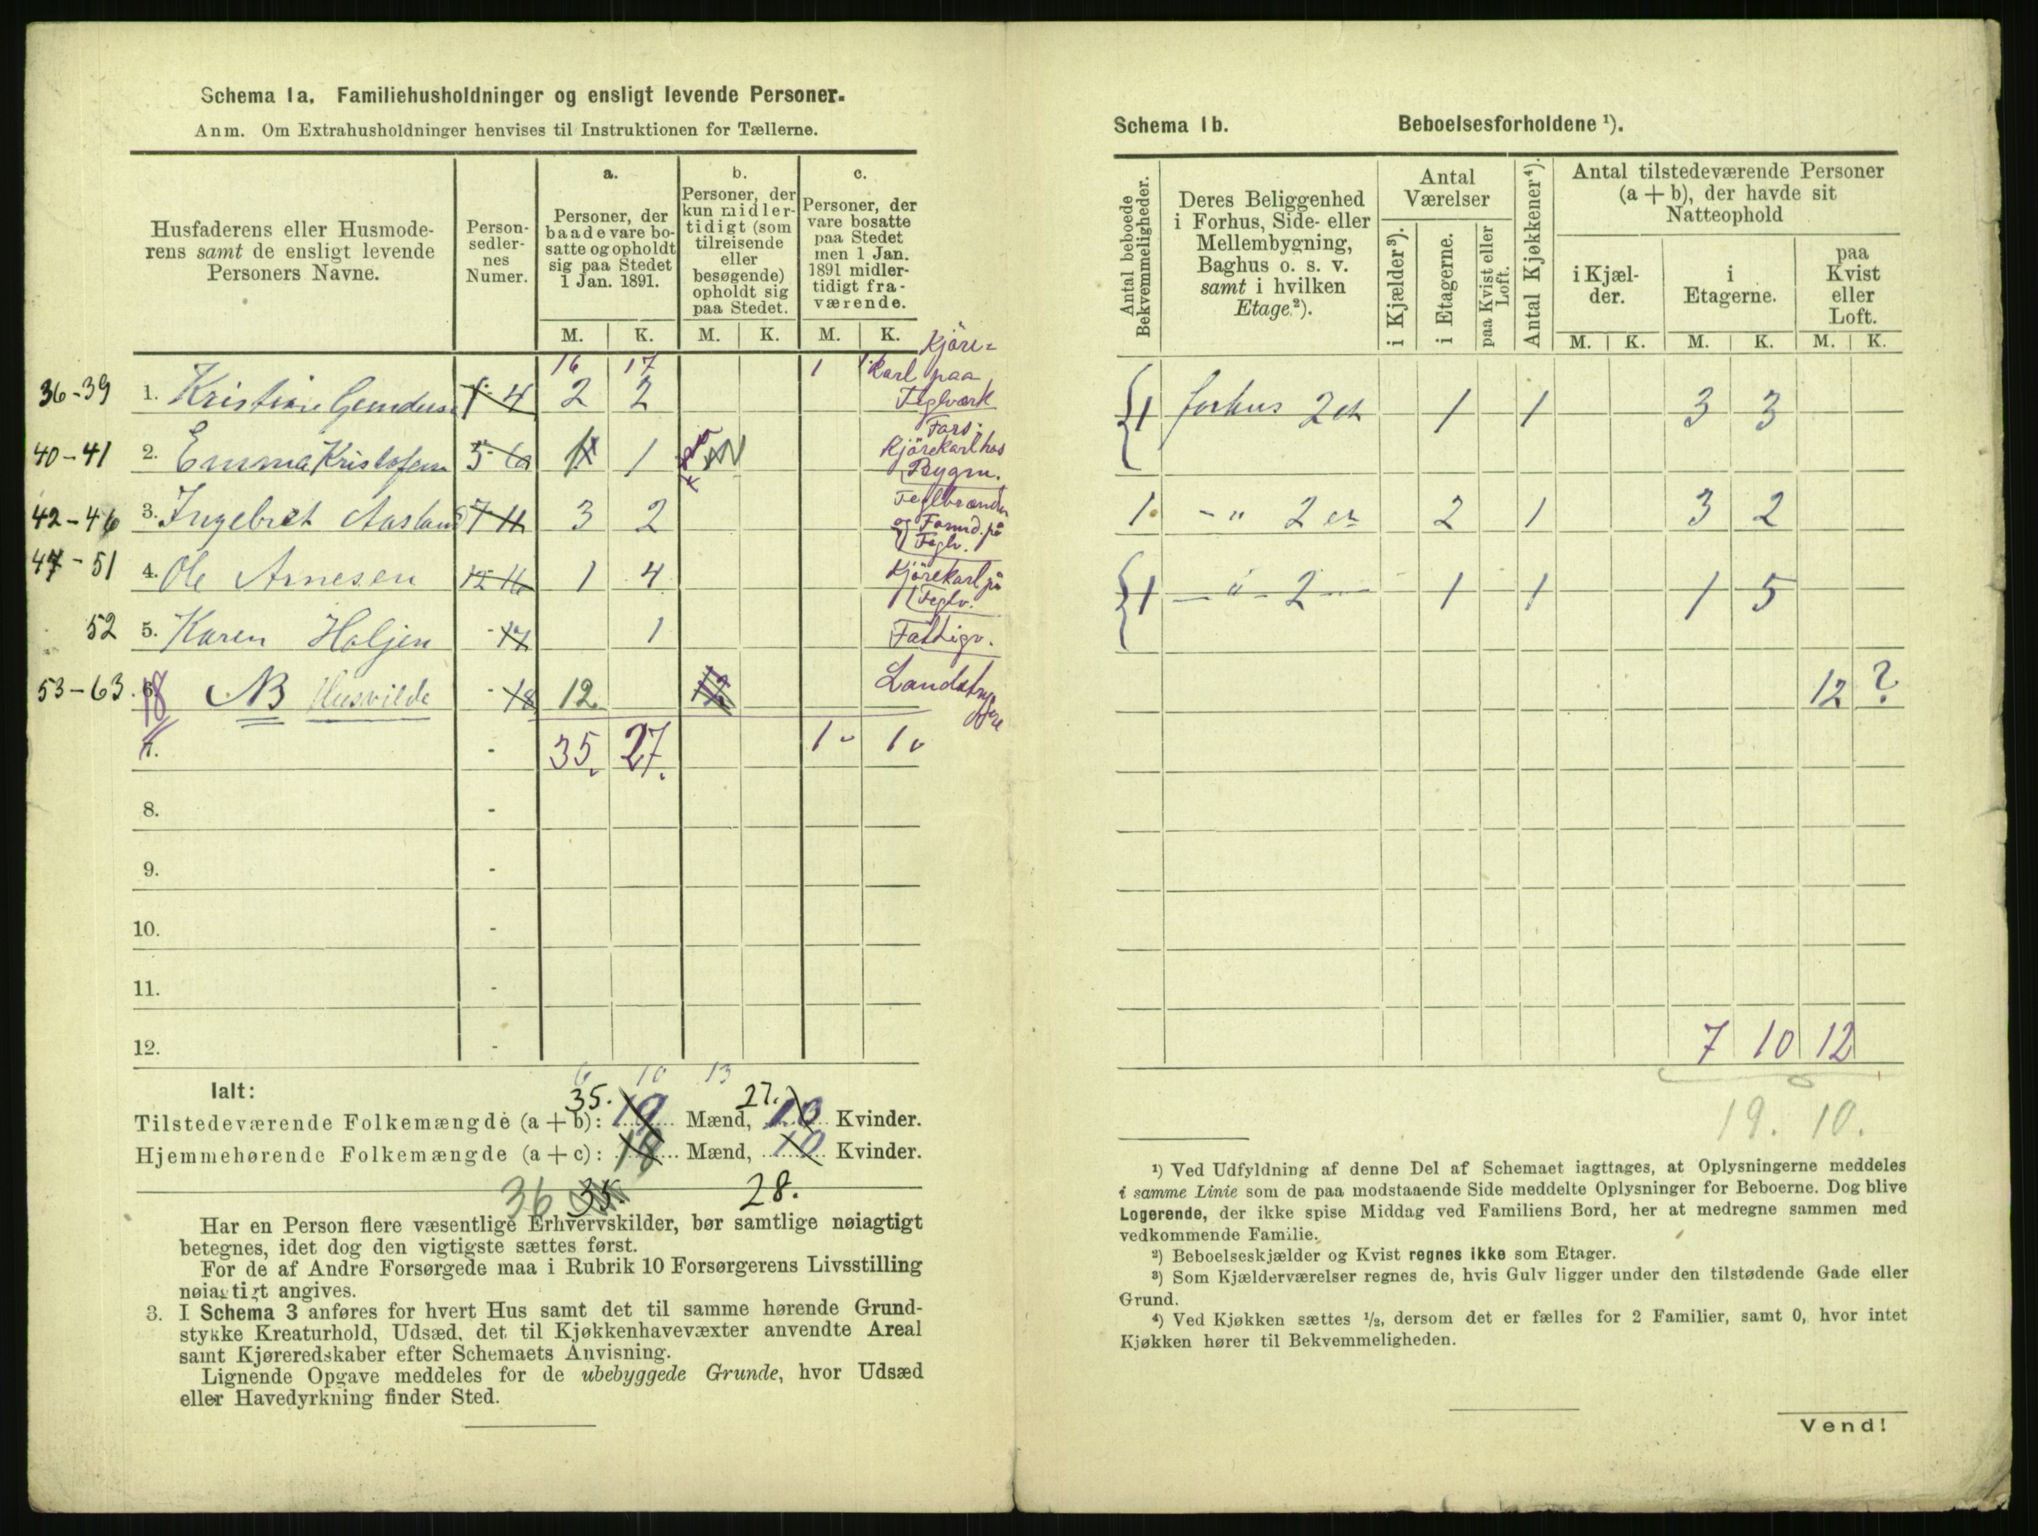 Schema 1a. Familiehusholdninger og ensligt levende Personer.
Anm. Om Extrahusholdninger henvises til Instruktionen for Tællerne.
Husfaderens eller Husmoderens samt de ensligt levende Personers Navne.
Person-sedler-nes Numer.
a. Personer, der baade vare bosatte og opholdt sig paa Stedet 1 Jan. 1891.
b. Personer, der kun midlertidigt (som tilreisende eller besøgende) opholdt sig paa Stedet.
c. Personer, der vare bosatte paa Stedet men 1 Jan. 1891 midlertidigt fraværende.
M. K. M. K. M. K.
16 17 1 1
36-39 1. Kristian Gundus 1-4 2 2 Kjöre-karl paa Teglværk
40-41 2. Emma Kristofersen 5-6 1 Fars: Kjörekarl hos Bygm.
42-46 3. Ingebret Aasland 7-11 3 2 Teglbrænder og Formd. på Teglv.
47-51 4. Ole Arnesen 12-16 1 4 Kjörekarl på Teglv.
52 5. Karen Holjen -17 1 Fattigv.
53-63 6. 18 NB Husvilde -18 12 12 Landstrygere
7. - 35. 27. 1 1
8. -
9. -
10. -
11. -
12. -
Ialt:
6 10 13
35. 27.
Tilstedeværende Folkemængde (a + b): 19 Mænd, 10 Kvinder.
Hjemmehørende Folkemængde (a + c): 18 Mænd, 10 Kvinder.
36 35. 28.
Har en Person flere væsentlige Erhvervskilder, bør samtlige nøiagtigt
betegnes, idet dog den vigtigste sættes først.
For de af Andre Forsørgede maa i Rubrik 10 Forsørgerens Livsstilling
nøiagtigt angives.
3. I Schema 3 anføres for hvert Hus samt det til samme hørende Grund-
stykke Kreaturhold, Udsæd, det til Kjøkkenhavevæxter anvendte Areal
samt Kjøreredskaber efter Schemaets Anvisning.
Lignende Opgave meddeles for de ubebyggede Grunde, hvor Udsæd
eller Havedyrkning finder Sted.
Schema 1b. Beboelsesforholdene ¹).
Antal beboede Bekvemmeligheder.
Deres Beliggenhed i Forhus, Side- eller Mellembygning, Baghus o. s. v. samt i hvilken Etage ²).
Antal Værelser
i Kjælder ³).
i Etagerne.
paa Kvist eller Loft.
Antal Kjøkkener ⁴).
Antal tilstedeværende Personer (a + b), der havde sit Natteophold
i Kjælder.
i Etagerne.
paa Kvist eller Loft.
M. K. M. K. M. K.
1 forhus 2 et 1 1 3 3
1. -"- 2 et 2 1 3 2
1 -"- 2 - 1 1 1 5
12 ?
7 10 12
19. 10.
¹) Ved Udfyldning af denne Del af Schemaet iagttages, at Oplysningerne meddeles
i samme Linie som de paa modstaaende Side meddelte Oplysninger for Beboerne. Dog blive
Logerende, der ikke spise Middag ved Familiens Bord, her at medregne sammen med
vedkommende Familie.
²) Beboelseskjælder og Kvist regnes ikke som Etager.
³) Som Kjælderværelser regnes de, hvis Gulv ligger under den tilstødende Gade eller
Grund.
⁴) Ved Kjøkken sættes ½, dersom det er fælles for 2 Familier, samt 0, hvor intet
Kjøkken hører til Bekvemmeligheden.
Vend!